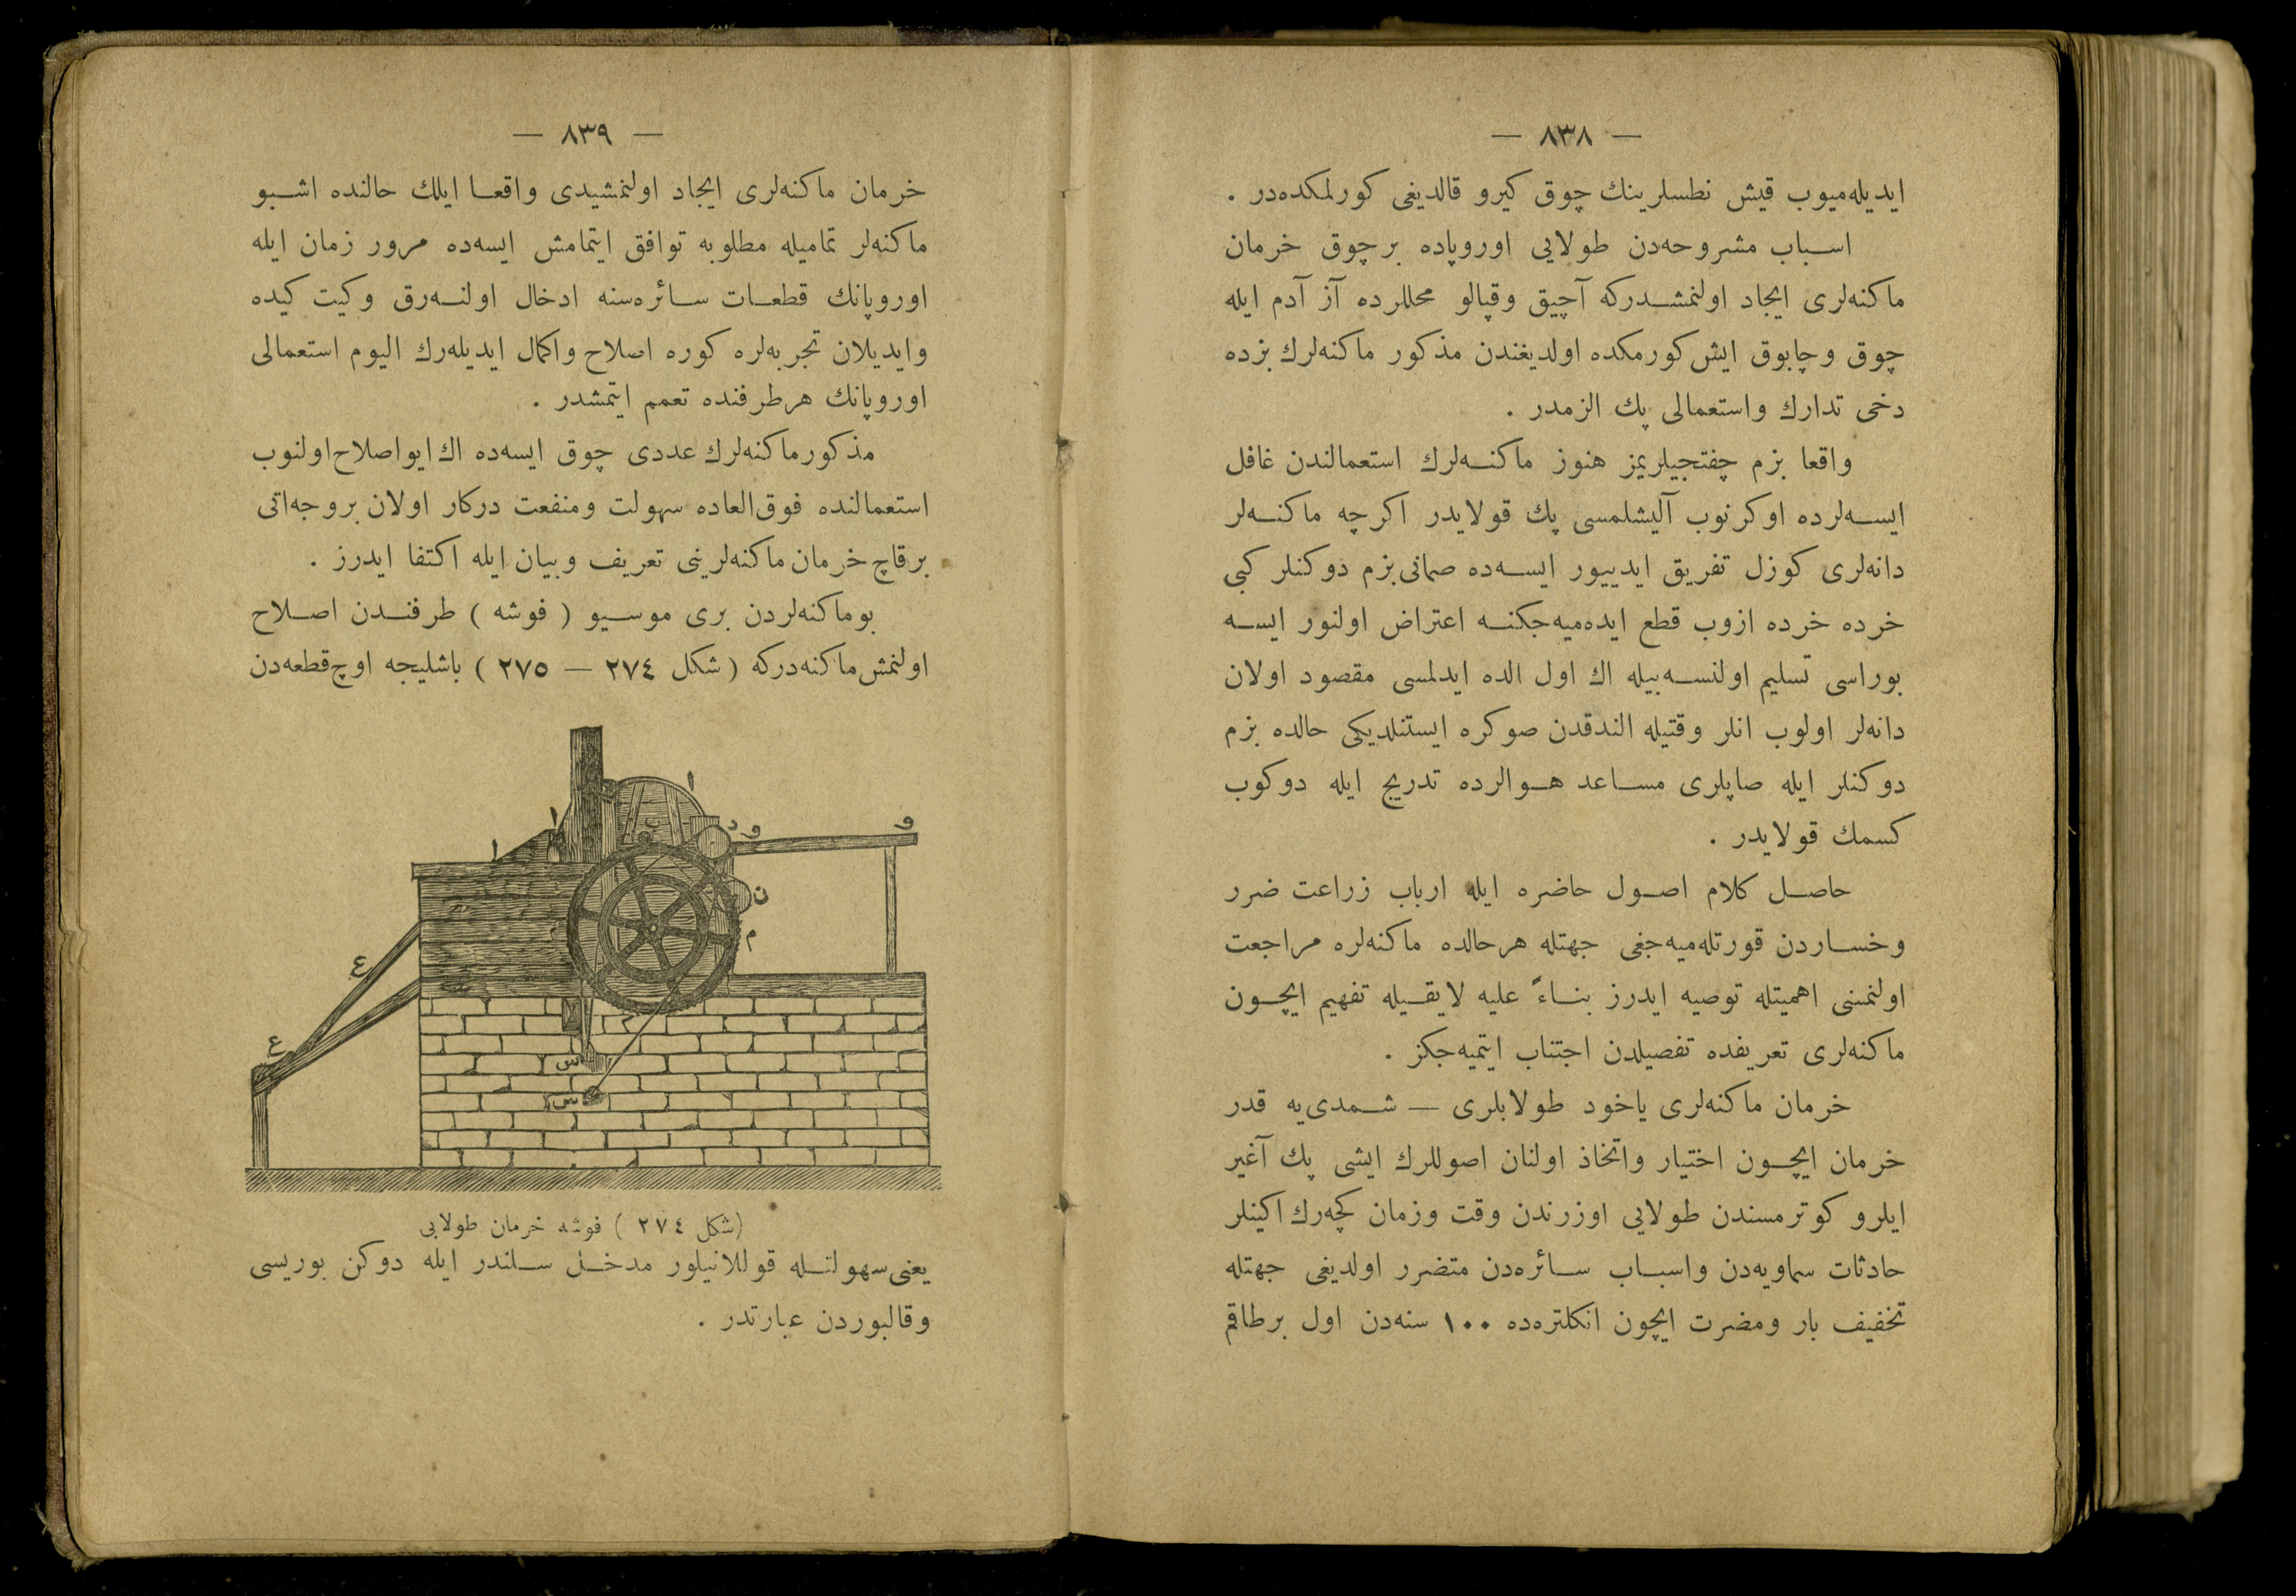 — ٨٣٨ —
ایدیله‌میوب قیش نطسلرینك چوق كیرو قالدیغی كورلمكده‌در .
اسباب مشروحه‌دن طولایی اوروپاده برچوق خرمان
ماكنه‌لری ایجاد اولنمشدركه آچیق وقپالو محللرده آز آدم ایله
چوق وچابوق ایش كورمكده اولدیغندن مذكور ماكنه‌لرك بزده
دخی تدارك واستعمالی پك الزمدر .
واقعا بزم چفتجیلریمز هنوز ماكنه‌لرك استعمالندن غافل
ایسه‌لرده اوكرنوب آلیشلمسی پك قولایدر اكرچه ماكنه‌لر
دانه‌لری كوزل تفریق ایدییور ایسه‌ده صمانی بزم دوكنلر كبی
خرده خرده ازوب قطع ایده‌میه‌جكنه اعتراض اولنور ایسه
بوراسی تسلیم اولنسه‌بیله اك اول الده ایدلمسی مقصود اولان
دانه‌لر اولوب انلر وقتیله الندقدن صوكره ایستنلدیكی حالده بزم
دوكنلر ایله صاپلری مساعد هوالرده تدریج ایله دوكوب
كسمك قولایدر .
حاصل كلام اصول حاضره ایله ارباب زراعت ضرر
وخساردن قورتله‌میه‌جغی جهتله هرحالده ماكنه‌لره مراجعت
اولنمسنی اهمیتله توصیه ایدرز بناءً علیه لایقیله تفهیم ایچون
ماكنه‌لری تعریفده تفصیلدن اجتناب ایتمیه‌جكز .
خرمان ماكنه‌لری یاخود طولابلری — شمدی‌یه قدر
خرمان ایچون اختیار واتخاذ اولنان اصوللرك ایشی پك آغیر
ایلرو كوترمسندن طولایی اوزرندن وقت وزمان كچه‌رك اكینلر
حادثات سماویه‌دن واسباب سائره‌دن متضرر اولدیغی جهتله
تخفیف بار ومضرت ایچون انكلتره‌ده ١٠٠ سنه‌دن اول برطاقم
— ٨٣٩ —
خرمان ماكنه‌لری ایجاد اولنمشیدی واقعا ایلك حالنده اشبو
ماكنه‌لر تمامیله مطلوبه توافق ایتمامش ایسه‌ده مرور زمان ایله
اوروپانك قطعات سائره‌سنه ادخال اولنه‌رق وكیت كیده
وایدیلان تجربه‌لره كوره اصلاح واكمال ایدیله‌رك الیوم استعمالی
اوروپانك هرطرفنده تعمم ایتمشدر .
مذكور ماكنه‌لرك عددی چوق ایسه‌ده اك ایو اصلاح اولنوب
استعمالنده فوق‌العاده سهولت ومنفعت دركار اولان بروجه‌آتی
برقاچ خرمان ماكنه‌لرینی تعریف وبیان ایله اكتفا ایدرز .
بوماكنه‌لردن بری موسیو ( فوشه ) طرفندن اصلاح
اولنمش ماكنه‌دركه ( شكل ٢٧٤ — ٢٧٥ ) باشلیجه اوچ قطعه‌دن
ا
ا
ا
ب
د
و
و
ن
م
ع
ع
س
س
(شكل ٢٧٤ ) فوشه خرمان طولابی
یعنی سهولتله قوللانیلور مدخل سلندر ایله دوكن بوریسی
وقالبوردن عبارتدر .